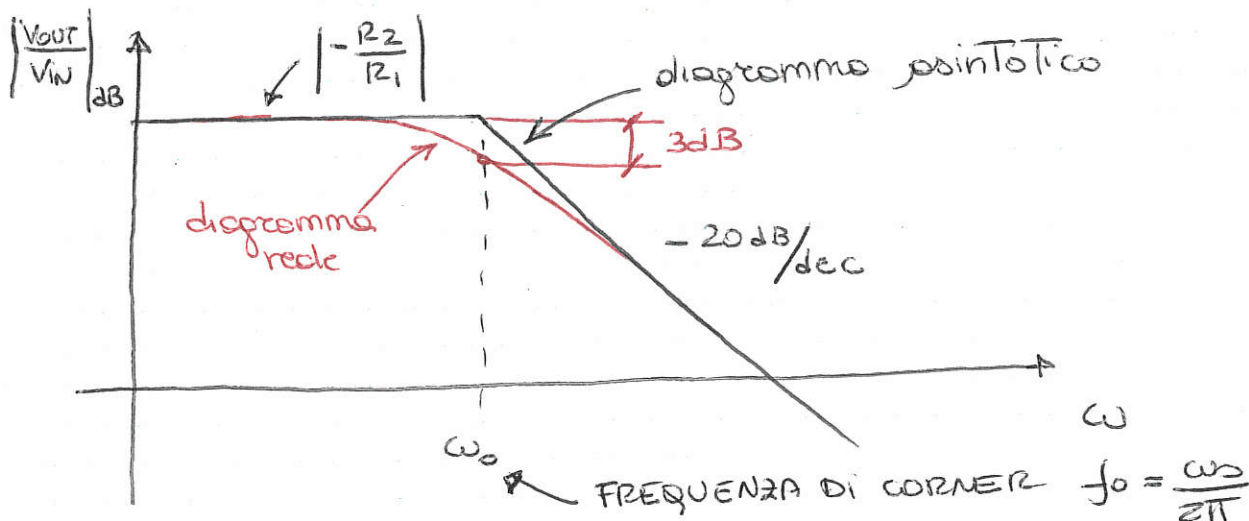 |Vout/Vin|dB
|-R2/R1|
diagramma asintotico
3dB
diagramma
reale
-20dB/dec
ω
ω₀
FREQUENZA Di CORNER f₀ = ω₀/2π